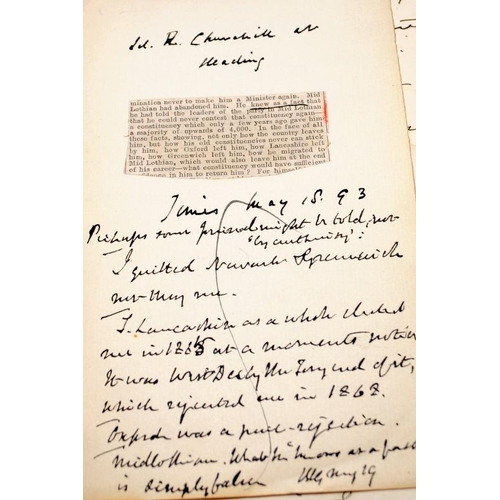 Ld. R. Churchill at
Reading
mination never to make him a Minister again. Mid
Lothian had abandoned him. He knew as a fact that
he had told the leaders of the party to Mid Lothian
that he could never contest that constituency again—
a constituency which only a few years ago gave him
a majority of upwards of 4,000. In the face of all
these facts, showing, not only how the country leaves
him, but how his old constituencies never can stick
by him, how Oxford left him, how Lancashire left
him, how Greenwich left him, how he migrated to
Mid Lothian, which would also leave him at the end
of his career—what constituency would have sufficient
in him to return him? For himself
Times May 18. 93
Perhaps some friend might be told, not
"by authority":
I quitted Newark & Greenwich
not they me.
S. Lancashire as a whole elected
me in 1865 at a moments notice
It was West Derby the Tory end of it,
which rejected me in 1868.
Oxford was a pure rejection.
Midlothian. What he "knows as a fact"
is simply false WG My 19